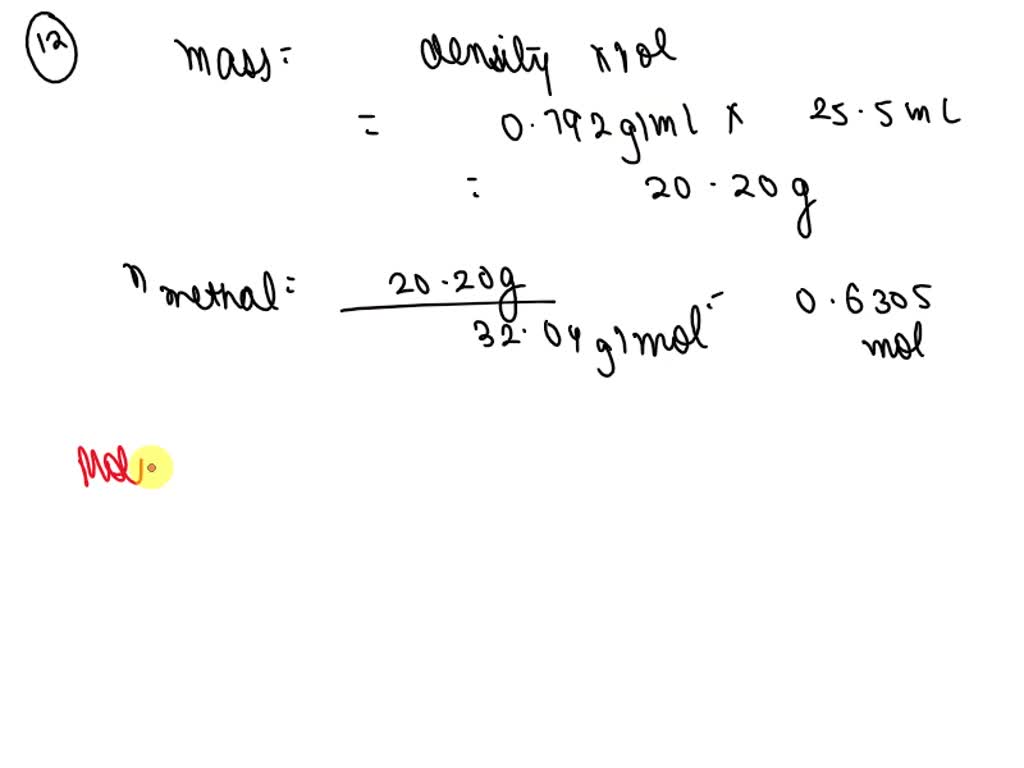 12 mass = density x vol
= 0.792 g/ml x 25.5 mL
= 20.20 g
n methal = 20.20 g / 32.04 g/mol = 0.6305 mol
Mol